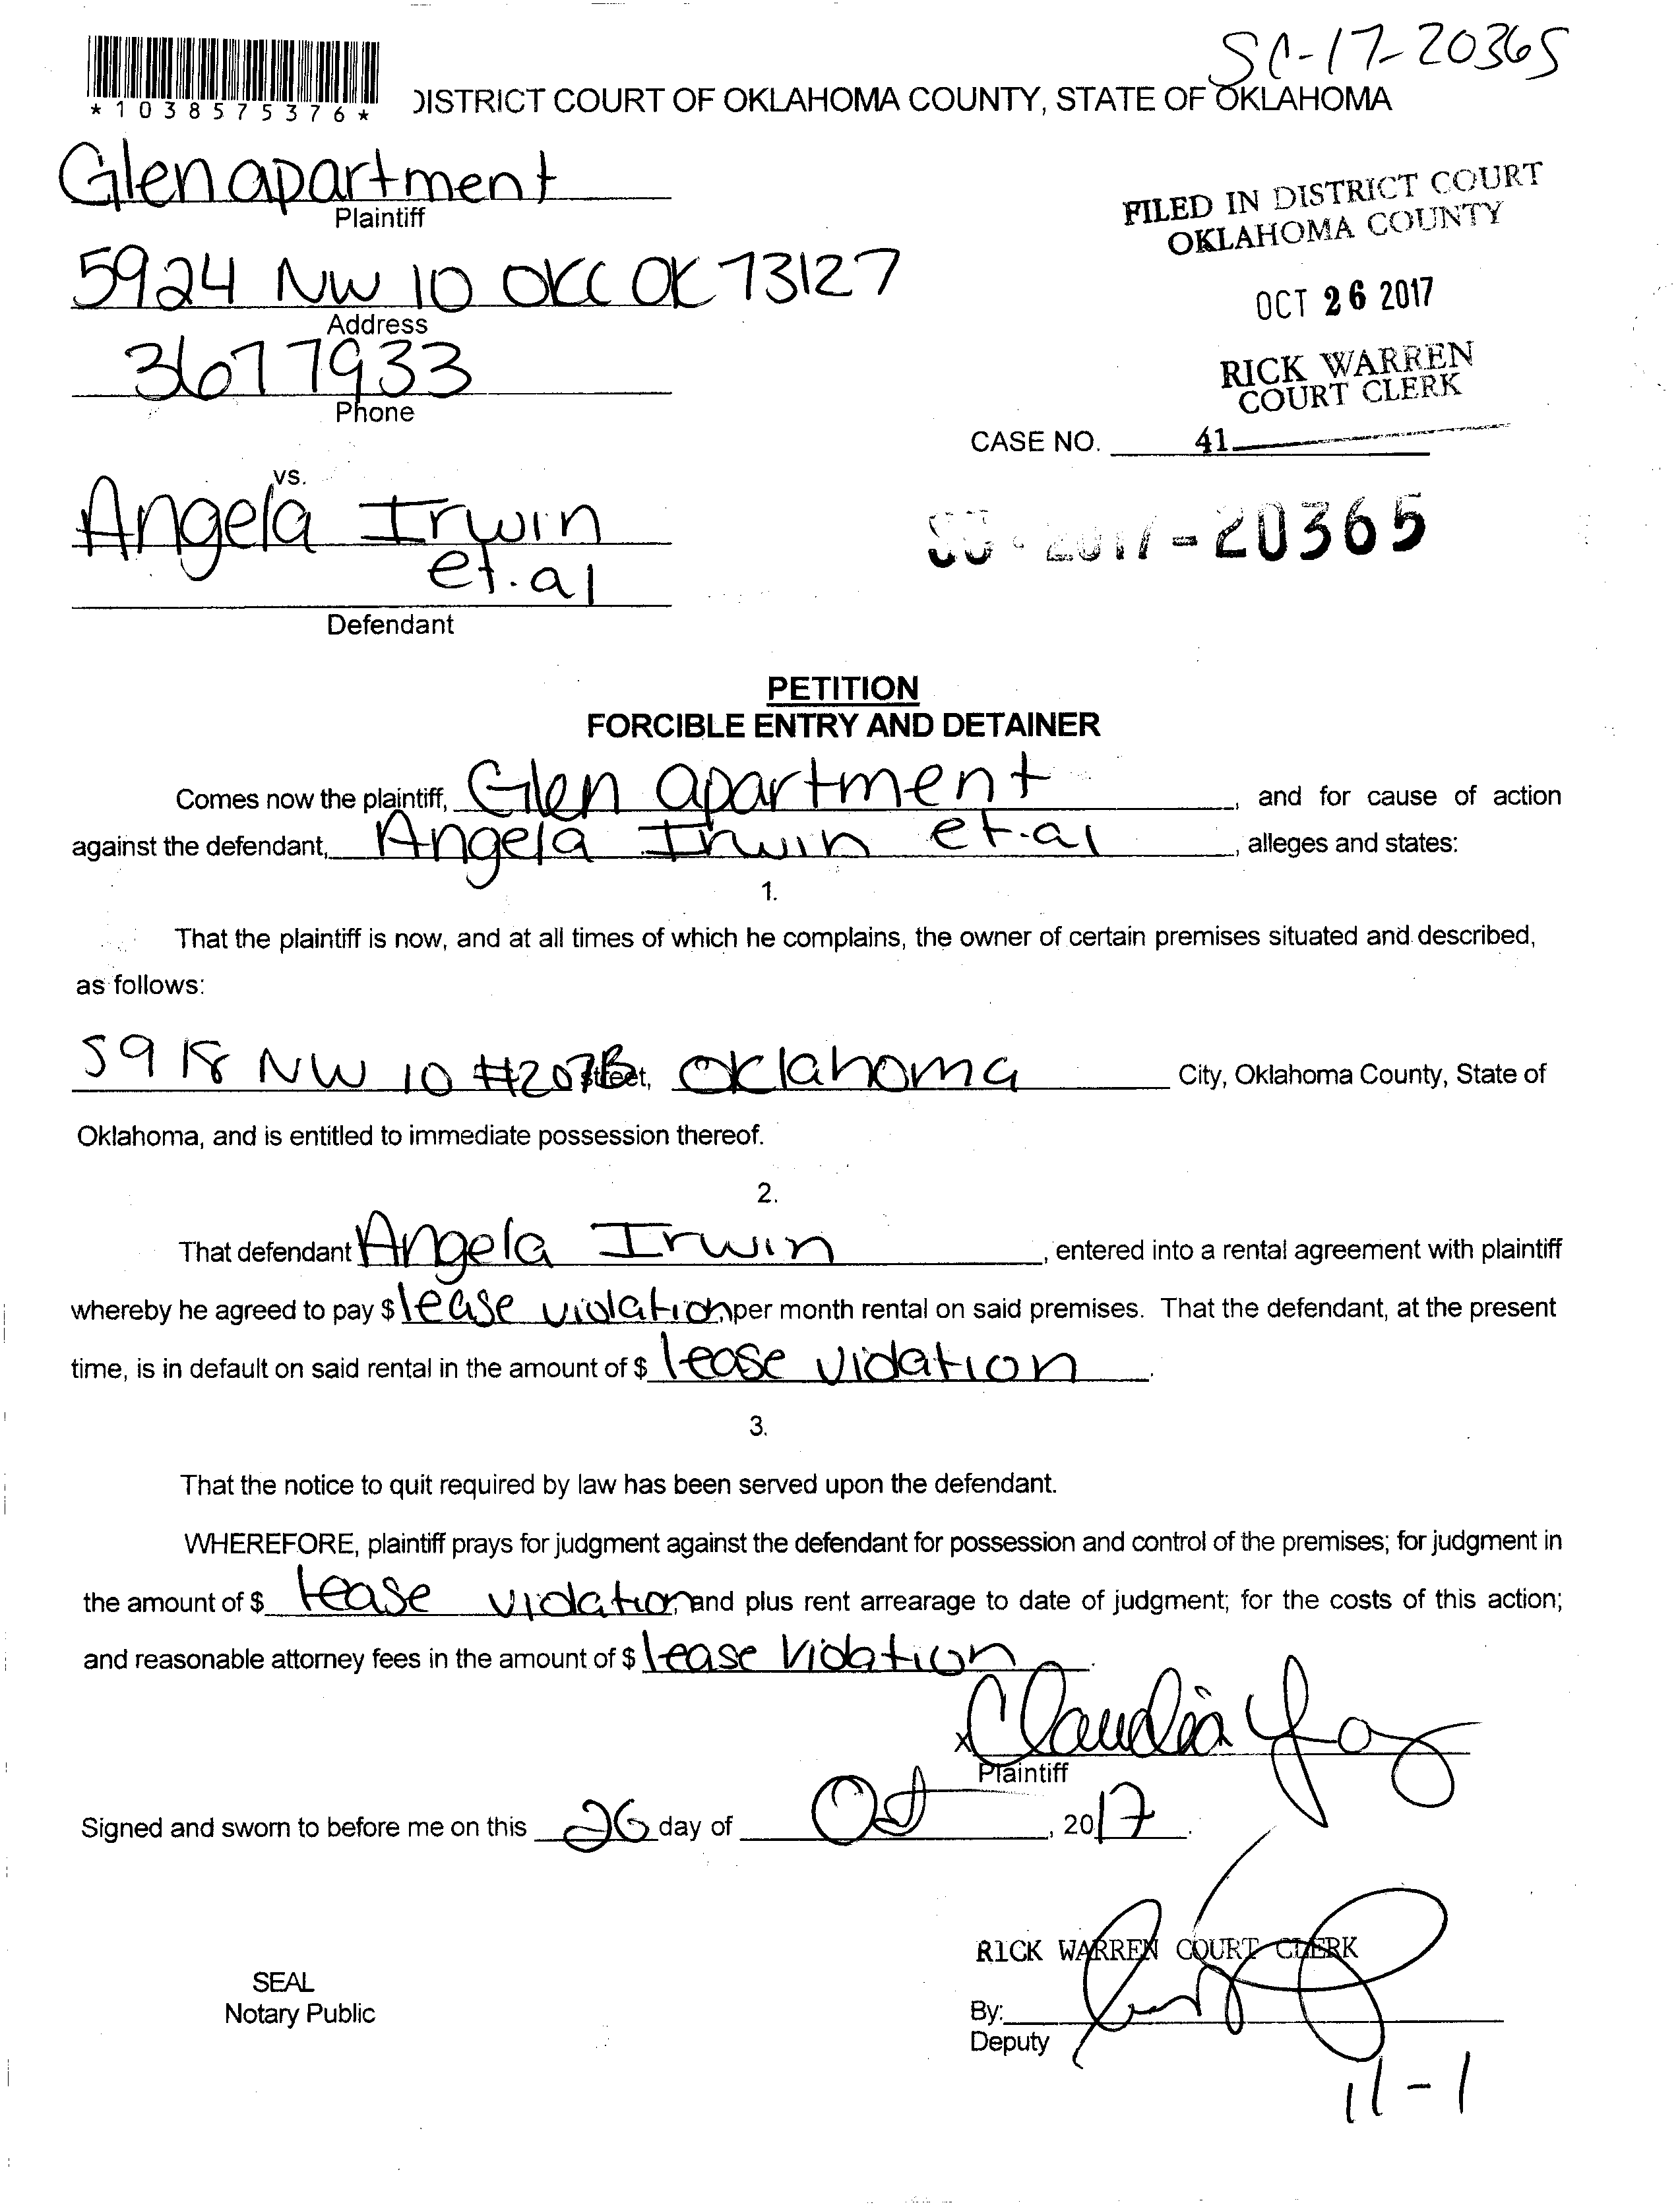 SC-17-20365
*1038575376*
DISTRICT COURT OF OKLAHOMA COUNTY, STATE OF OKLAHOMA
Glen apartment
Plaintiff
FILED IN DISTRICT COURT
OKLAHOMA COUNTY
5924 NW 10 OKC OK 73127
Address
OCT 26 2017
3677933
Phone
RICK WARREN
COURT CLERK
CASE NO. 41
vs.
Angela Irwin
et.al
Defendant
SC-2017-20365
PETITION
FORCIBLE ENTRY AND DETAINER
Comes now the plaintiff, Glen apartment, and for cause of action
against the defendant, Angela Irwin et.al, alleges and states:
1.
That the plaintiff is now, and at all times of which he complains, the owner of certain premises situated and described,
as follows:
5918 NW 10 #207B street, Oklahoma City, Oklahoma County, State of
Oklahoma, and is entitled to immediate possession thereof.
2.
That defendant Angela Irwin, entered into a rental agreement with plaintiff
whereby he agreed to pay $ lease violation per month rental on said premises. That the defendant, at the present
time, is in default on said rental in the amount of $ lease violation.
3.
That the notice to quit required by law has been served upon the defendant.
WHEREFORE, plaintiff prays for judgment against the defendant for possession and control of the premises; for judgment in
the amount of $ lease violation, and plus rent arrearage to date of judgment; for the costs of this action;
and reasonable attorney fees in the amount of $ lease violation.
x Claudia
Plaintiff
Signed and sworn to before me on this 26 day of Oct, 2017.
RICK WARREN COURT CLERK
SEAL
Notary Public
By:
Deputy
11-1